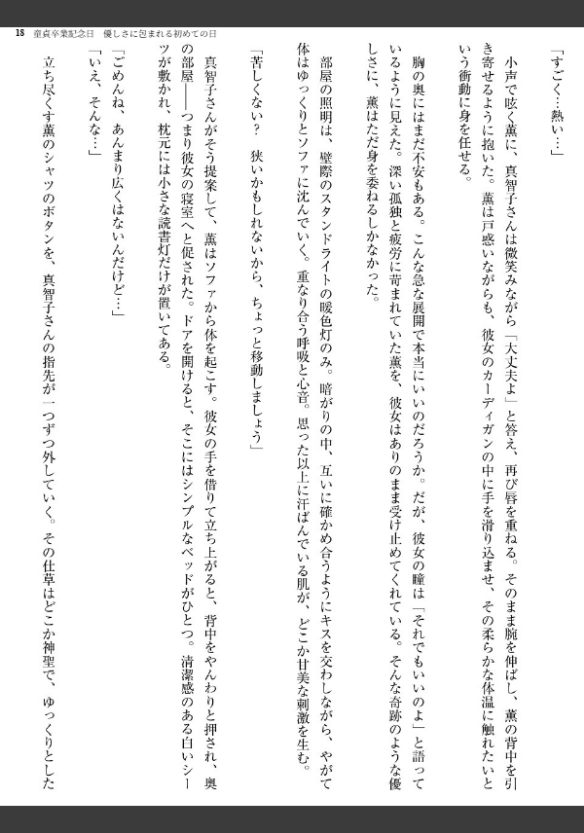 18 童貞卒業記念日 優しさに包まれる初めての日
「すごく…熱い…」
小声で呟く薫に、真智子さんは微笑みながら「大丈夫よ」と答え、再び唇を重ねる。そのまま腕を伸ばし、薫の背中を引
き寄せるように抱いた。薫は戸惑いながらも、彼女のカーディガンの中に手を滑り込ませ、その柔らかな体温に触れたいと
いう衝動に身を任せる。
胸の奥にはまだ不安もある。こんな急な展開で本当にいいのだろうか。だが、彼女の瞳は「それでもいいのよ」と語って
いるように見えた。深い孤独と疲労に苛まれていた薫を、彼女はありのまま受け止めてくれている。そんな奇跡のような優
しさに、薫はただ身を委ねるしかなかった。
部屋の照明は、壁際のスタンドライトの暖色灯のみ。暗がりの中、互いに確かめ合うようにキスを交わしながら、やがて
体はゆっくりとソファに沈んでいく。重なり合う呼吸と心音。思った以上に汗ばんでいる肌が、どこか甘美な刺激を生む。
「苦しくない? 狭いかもしれないから、ちょっと移動しましょう」
真智子さんがそう提案して、薫はソファから体を起こす。彼女の手を借りて立ち上がると、背中をやんわりと押され、奥
の部屋――つまり彼女の寝室へと促された。ドアを開けると、そこにはシンプルなベッドがひとつ。清潔感のある白いシー
ツが敷かれ、枕元には小さな読書灯だけが置いてある。
「ごめんね、あんまり広くはないんだけど…」
「いえ、そんな…」
立ち尽くす薫のシャツのボタンを、真智子さんの指先が一つずつ外していく。その仕草はどこか神聖で、ゆっくりとした